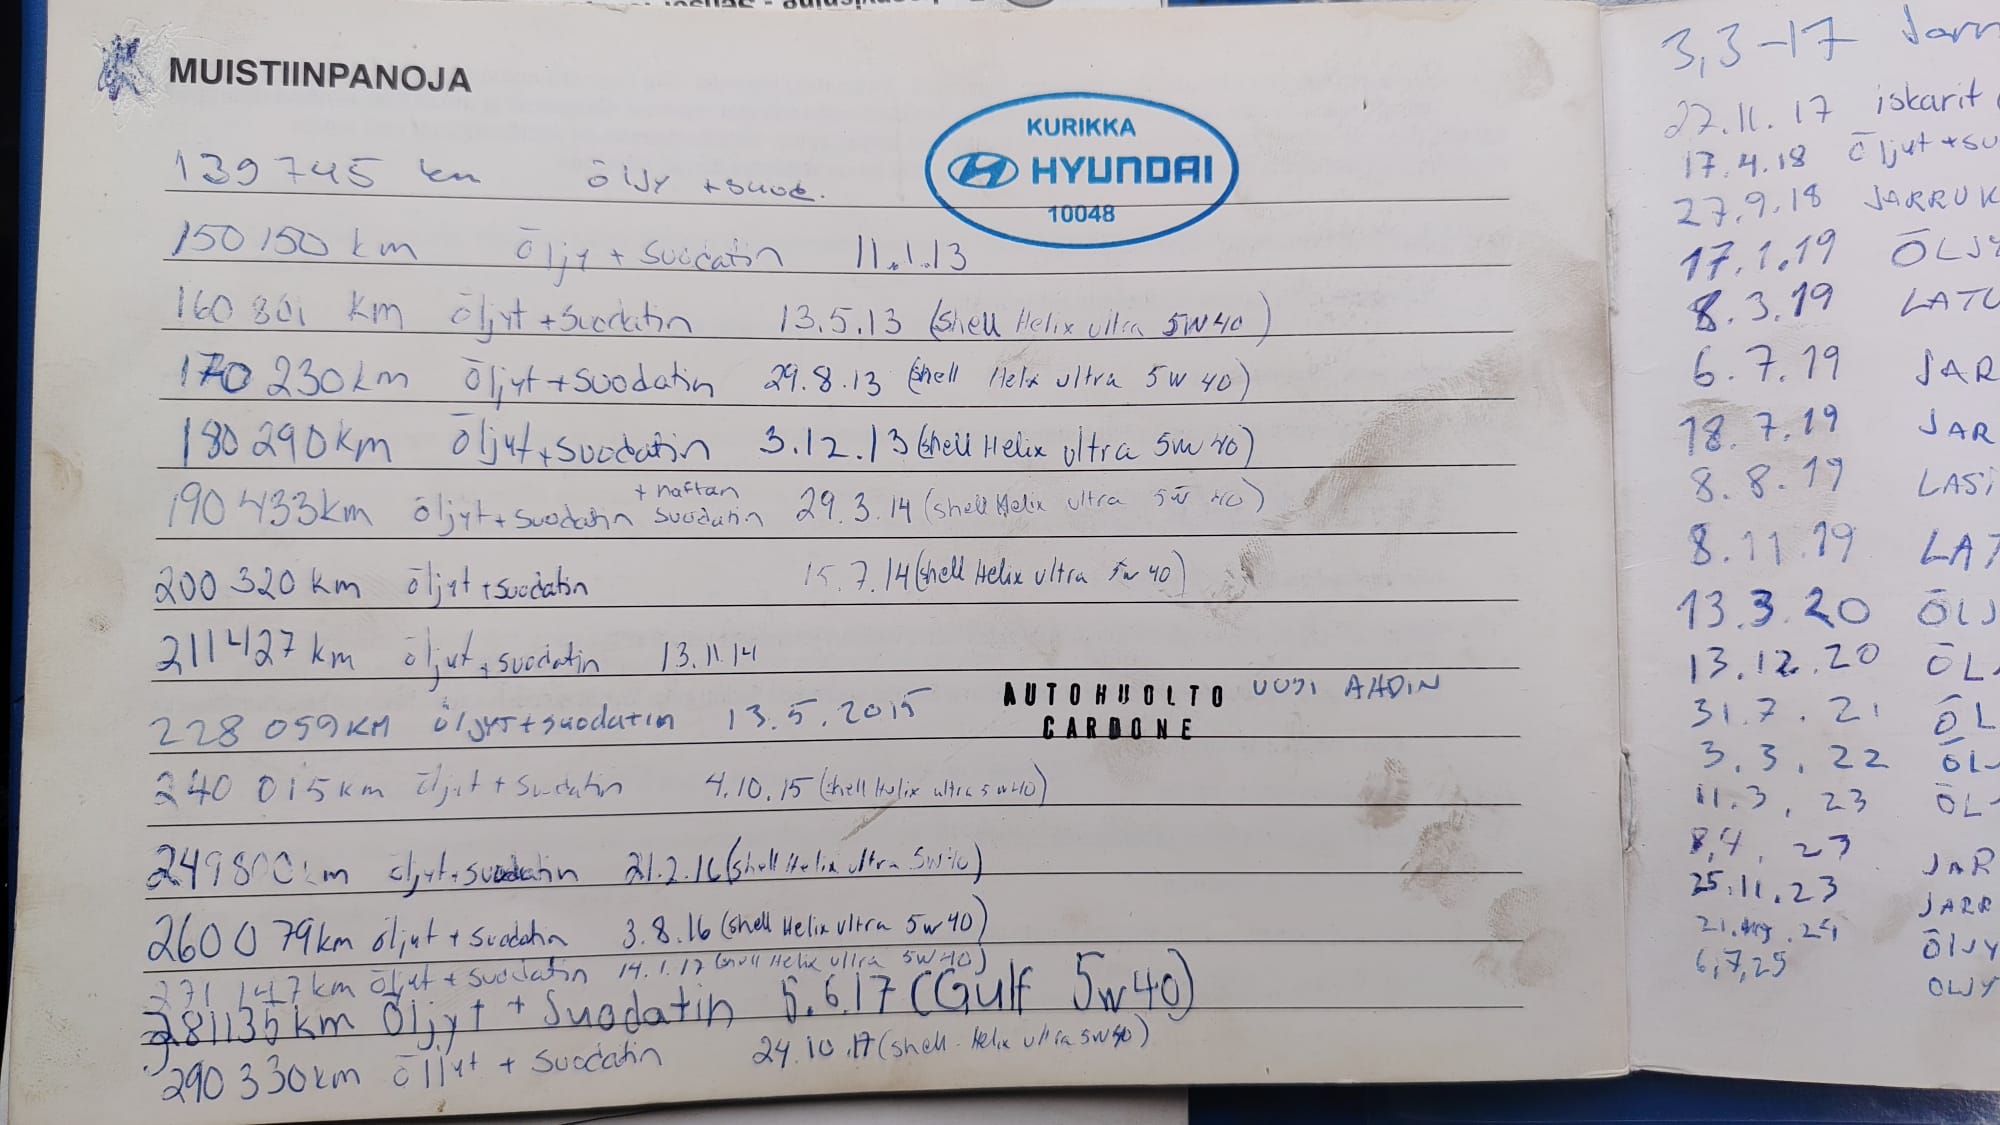 MUISTIINPANOJA
KURIKKA
HYUNDAI
10048
139 745 km öljy + suod.
150 150 km öljy + suodatin 11.1.13
160 801 km öljyt + suodatin 13.5.13 (Shell Helix ultra 5W40)
170 230 km öljyt + suodatin 29.8.13 (shell Helix ultra 5w40)
180 290 km öljyt + suodatin 3.12.13 (shell Helix ultra 5w40)
190 433 km öljyt + suodatin + naftan suodatin 29.3.14 (shell Helix ultra 5w40)
200 320 km öljyt + suodatin 15.7.14 (shell Helix ultra 5w40)
211 427 km öljyt + suodatin 13.11.14
228 059 KM öljyt + suodatin 13.5.2015 AUTOHUOLTO CARDONE UUSI AHDIN
240 015 km öljyt + suodatin 4.10.15 (shell Helix ultra 5w40)
249 800 km öljyt + suodatin 21.2.16 (shell Helix ultra 5w40)
260 079 km öljyt + suodatin 3.8.16 (shell Helix ultra 5w40)
271 147 km öljyt + suodatin 14.1.17 (shell Helix ultra 5W40)
281135 km öljyt + suodatin 5.6.17 (Gulf 5w40)
290 330 km öljyt + suodatin 24.10.17 (shell Helix ultra 5w40)
3,3-17 Jarr
27.11.17 iskarit
17.4.18 öljyt + su
27.9.18 JARRUK
17.1.19 ÖLJY
8.3.19 LATU
6.7.19 JAR
18.7.19 JAR
8.8.19 LASI
8.11.19 LAT
13.3.20 ÖLJ
13.12.20 ÖL
31.7.21 ÖL
3.3.22 ÖL
11.3.23 ÖL
8,4.23 JAR
25.11.23 JARR
ÖLJY
6,7,25 OLJY